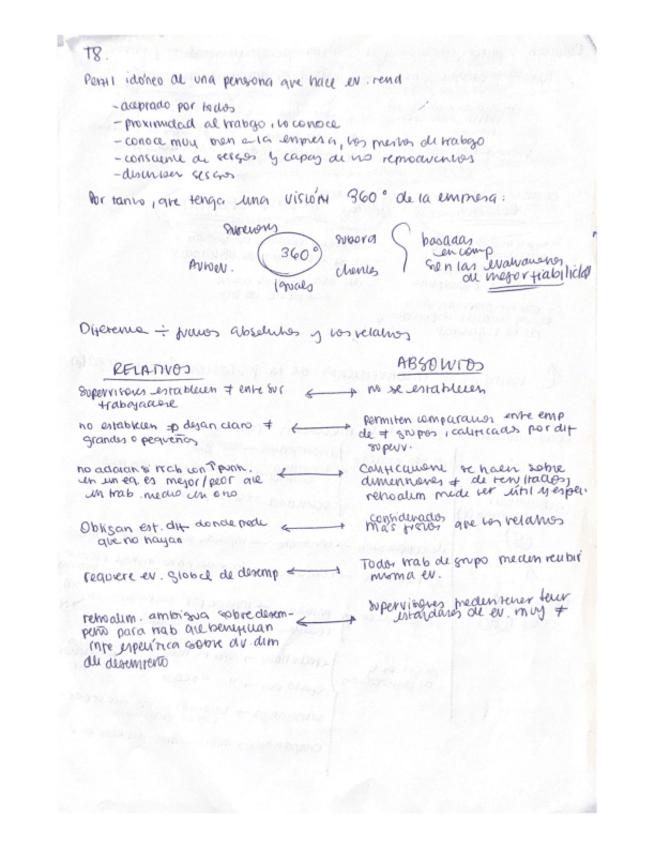 T8.
Perfil idóneo de una persona que hace ev. rend
- aceptado por todos
- proximidad al trabajo, lo conoce
- conoce muy bien a la empresa, los puestos de trabajo
- consciente de sesgos y capaz de no reproducirlos
- disminuir sesgos
Por tanto, que tenga una visión 360° de la empresa:
Superiores
360°
subord
Autoev.
clientes
iguales
basadas
en comp
son las evaluaciones
de mayor fiabilidad
Diferencia ÷ juicios absolutos y los relativos
RELATIVOS
ABSOLUTOS
Supervisores establecen ≠ entre sus
trabajadores
no se establecen
no establecen => dejan claro ≠
grandes o pequeños
Permiten comparaciones entre emp
de ≠ grupos, calificados por dif
superv.
no aclaran si trab con ↑ punt.
en un eq. es mejor/peor que
un trab. medio en otro
Calificaciones se hacen sobre
dimensiones ≠ de resultados,
retroalim puede ser útil y espec.
Obligan est. dif donde puede
que no hayan
considerados
más justos que los relativos
requiere ev. global de desemp
Todos trab de grupo pueden recibir
misma ev.
retroalim. ambigua sobre desem-
peño para trab que benefician
info específica sobre div. dim
de desempeño
Supervisores pueden tener
estándares de ev. muy ≠